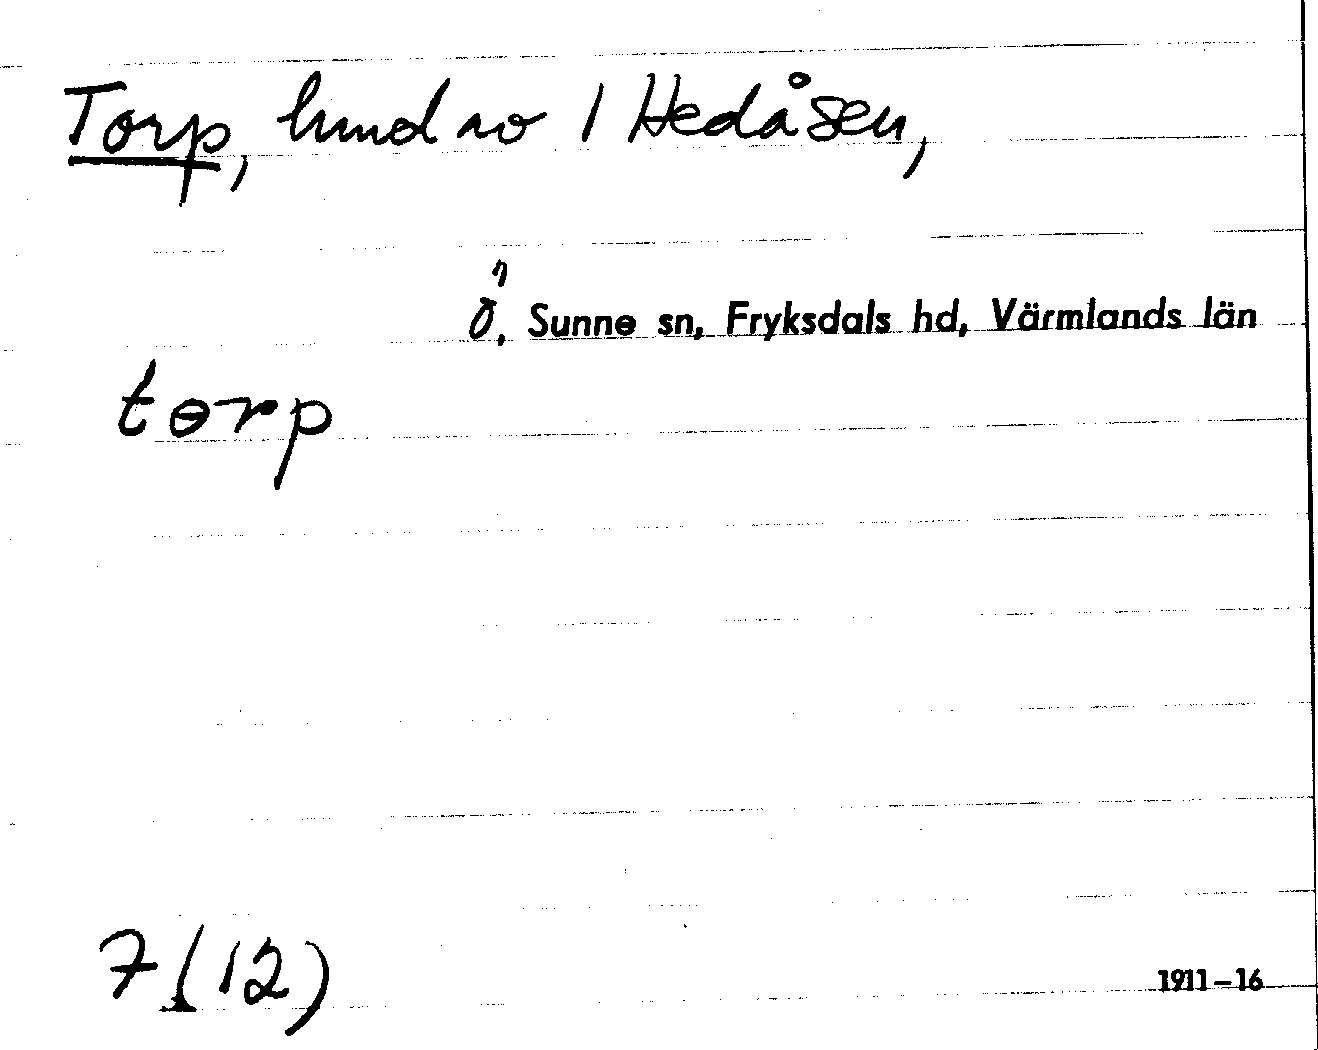 Torp, hmd av 1 Hedåsen,
Ö, Sunne sn, Fryksdals hd, Värmlands län
tɵrp
7 (12)
1911–16